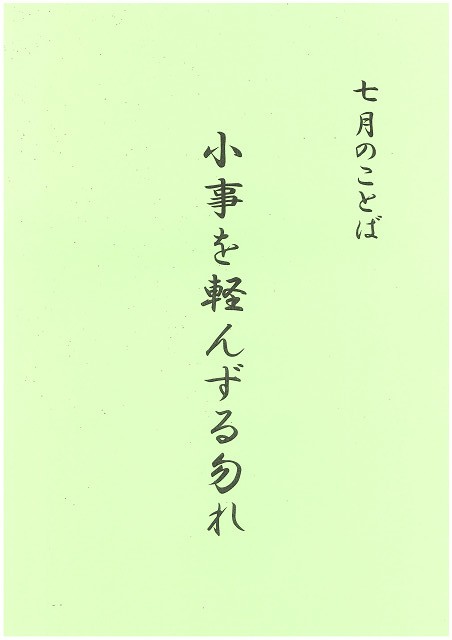 七月のことば
小事を軽んずる勿れ